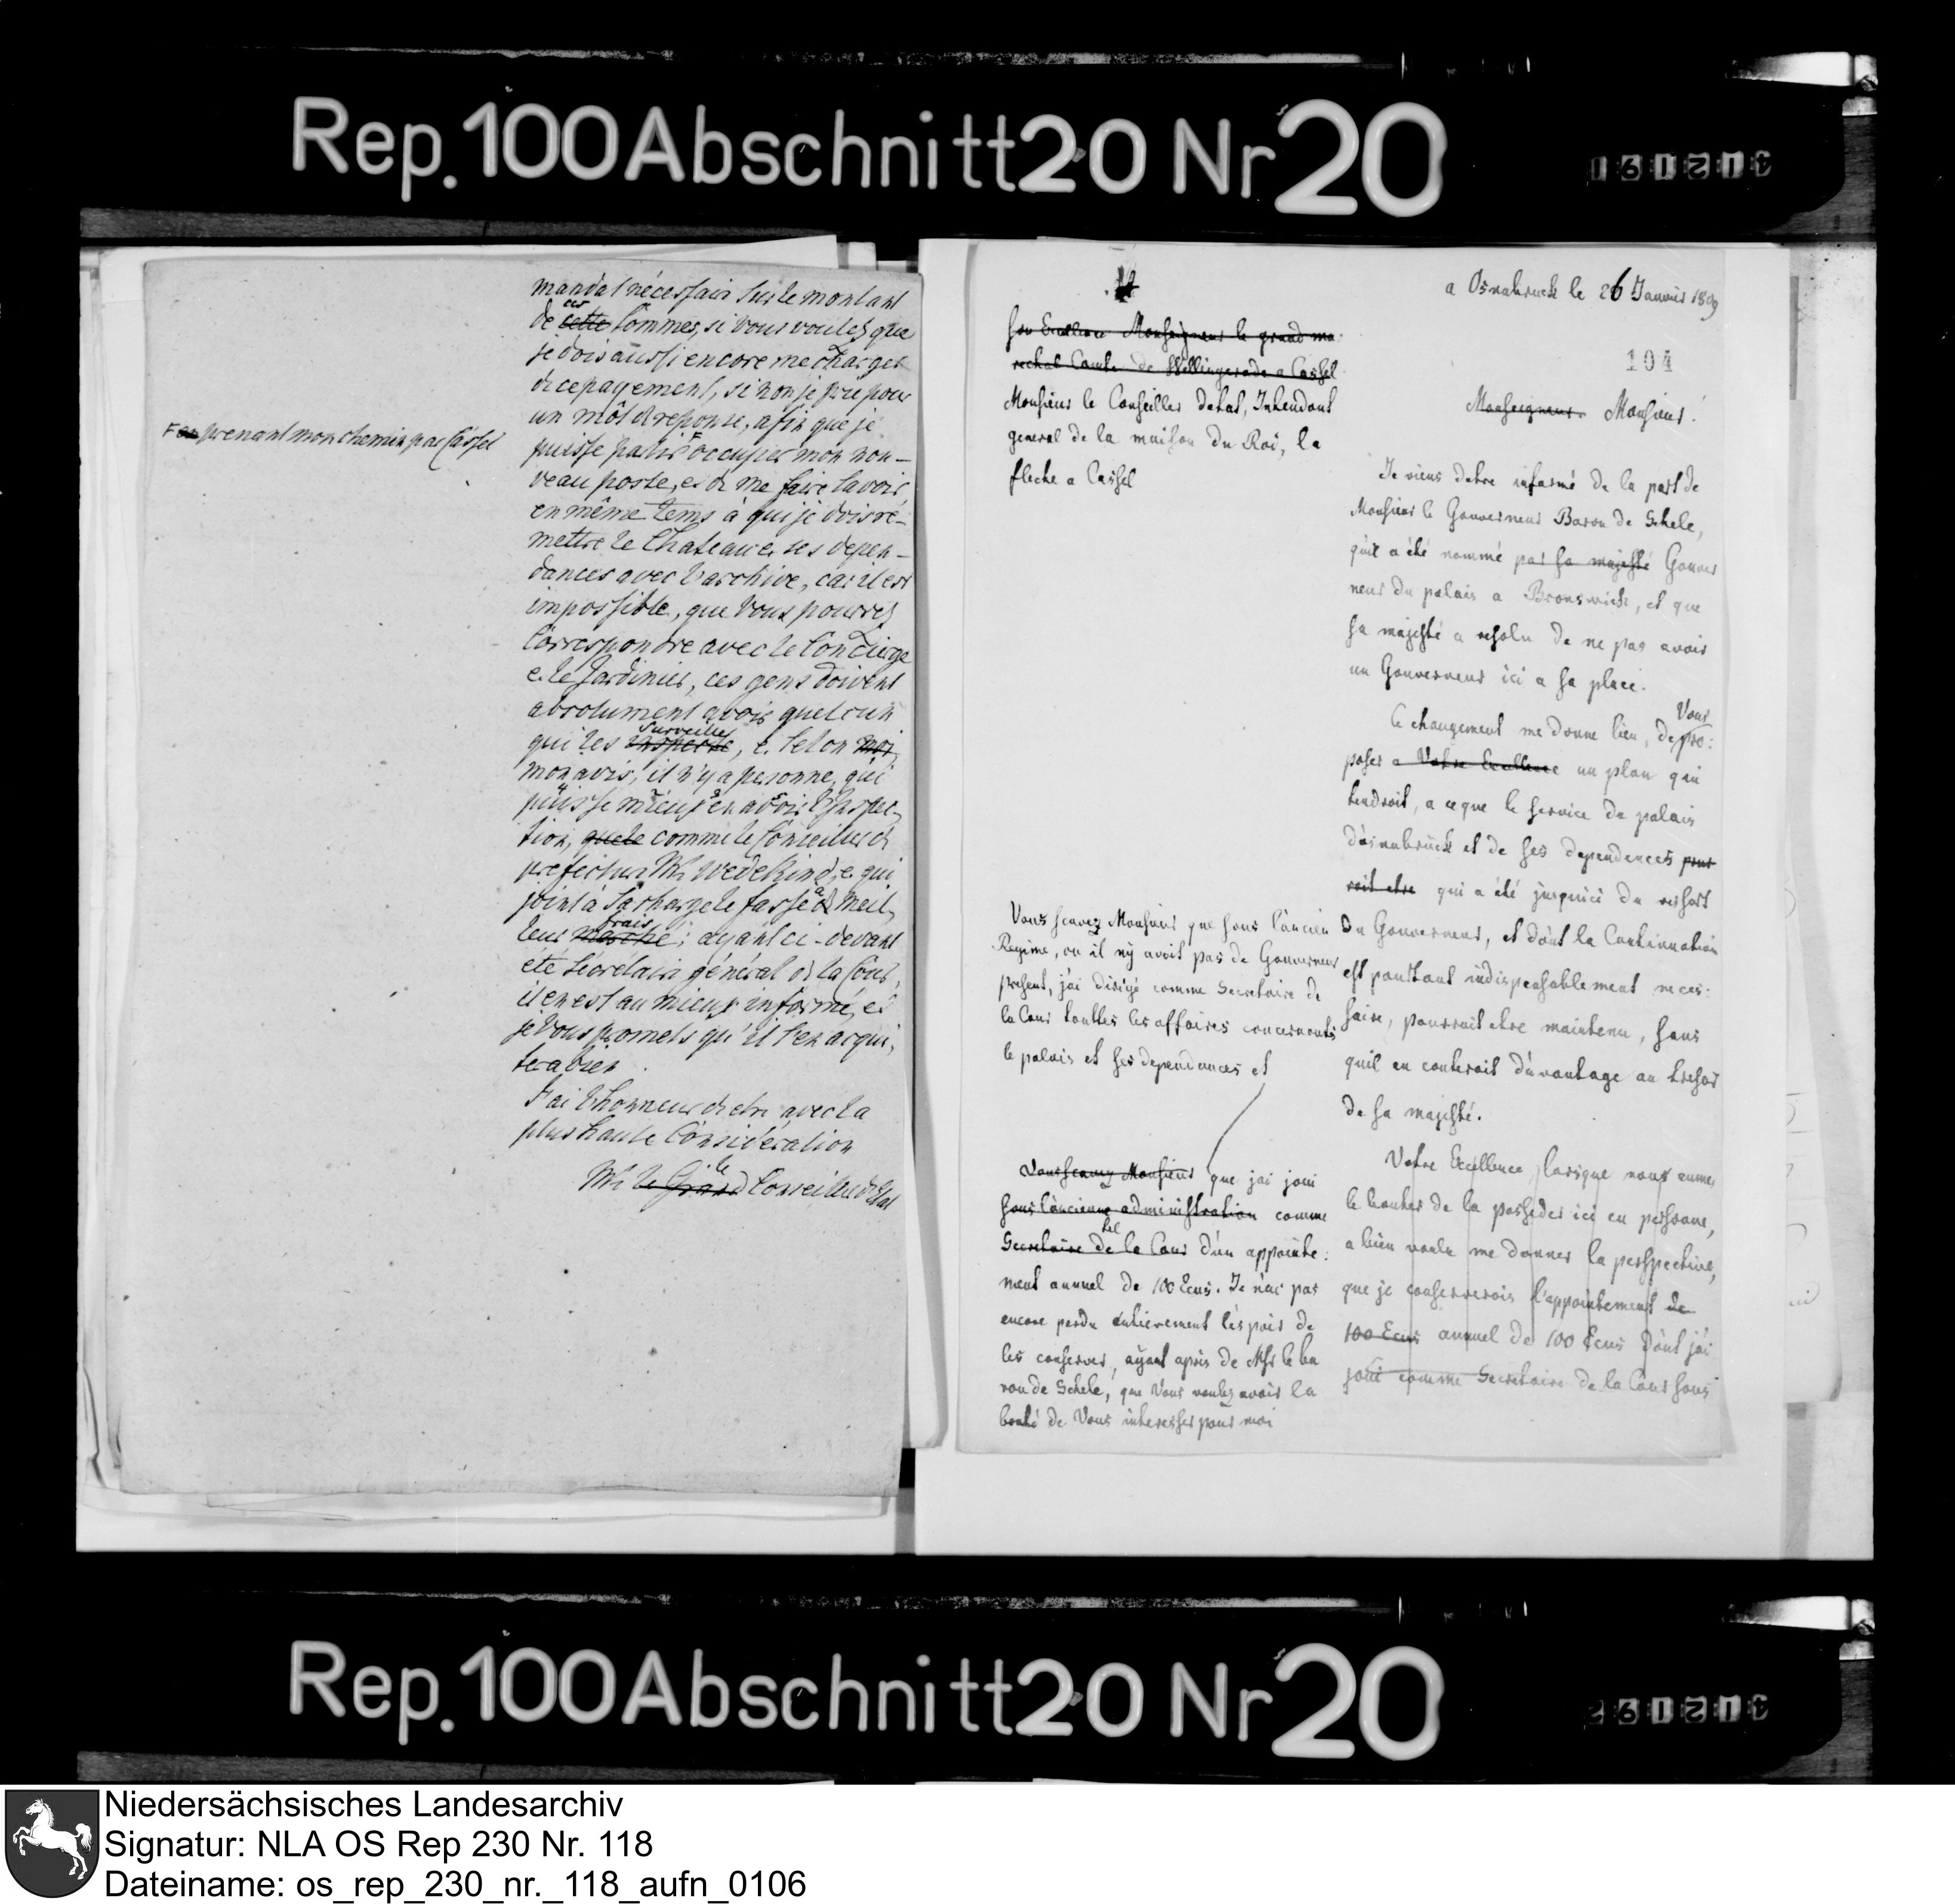 Rep. 100 Abschnitt 20 Nr 20
mandat nécessair sur le montant
de cette ces sommes, si vous voulez que
je dois aussi encore me charger
de ce payement, si non je prie pour
un môt de reponse, afin que je
puisse partir F occuper mon nou-
veau poste, et de me faire savoir
en même tems à qui je dois re-
mettre le Chateau et ses depen-
dances avec l'archive, car il est
impossible, que vous pourrez
Correspondre avec le Concierge
et le Jardinier, ces gens doivent
absolument avoir quelcun
qui les inspecte surveille, et selon moi
mon avis, il n'y a personne, qui
puisse mieux en avoir l'Inspec-
tion, que le comme le Conseiller de
prefectur Mr. Wedekind, et qui
joint à sa charge le fasse à meil-
leur marché frais; ayant ci-devant
eté Secretair général de la Cour,
il en est au mieux informé, et
je vous promets qu'il s'en acqui-
tera bien.
J'ai l'honneur d'etre avec la
plus haute Considération
Mr. le Grand le Conseiller d'Etat
F en prenant mon chemin par Cassel
a Osnabruck le 26 Janvier 1809
194
Son Excellence Monseigneur le grand ma-
rechal Comte de Wellingerode a Cassel
Monsieur le Conseiller detat, Intendant
general de la maison du Roi, la
fleche a Cassel
Monseigneur. Monsieur!
Je viens detre informé de la part de
Monsieur le Gouverneur Baron de Schele,
qu'il a été nommé par sa majesté Gouver
neur du palais a Bronswick, et que
sa majesté a resolu de ne pas avoir
un Gouverneur ici a sa place.
Ce changement me donne lieu, de Vous pro:
poser a Votre Excellence un plan qui
tendroit, a ce que le service du palais
d'osnabrück et de ses dependences pour
roit etre qui a été jusquici du ressort
du Gouverneur, et dont la Continuation
est pourtant indispensablement neces:
saire, pourrait etre maintenu, sans
quil en couterait d'avantage au tresor
de sa majesté.
Votre Excellence, lorsque nous eumes
le bonheur de la posseder ici en personne,
a bien voulu me donner la perspective,
que je conserverois l'appointement de
100 Ecus annuel de 100 Ecus dont j'ai
joui comme Secretaire de la Cour sous
Vous scavez Monsieur que sous l'ancien
Regime, ou il n'y avoit pas de Gouverneur
present, j'ai dirigé comme Secretaire de
la Cour touttes les affaires concernants
le palais et ses dependances et
Vous scavez Monsieur que jai joui
sous l'ancienne administration comme
Secretaire de la Cour tel d'un appointe:
ment annuel de 100 Ecus. Je n'ai pas
encore perdu entierement l'espoir de
les conserver, ayant apris de Msr le ba
ron de Schele, que Vous voulez avoir la
bonté de Vous interesser pour moi
Rep. 100 Abschnitt 20 Nr 20
Niedersächsisches Landesarchiv
Signatur: NLA OS Rep 230 Nr. 118
Dateiname: os_rep_230_nr._118_aufn_0106